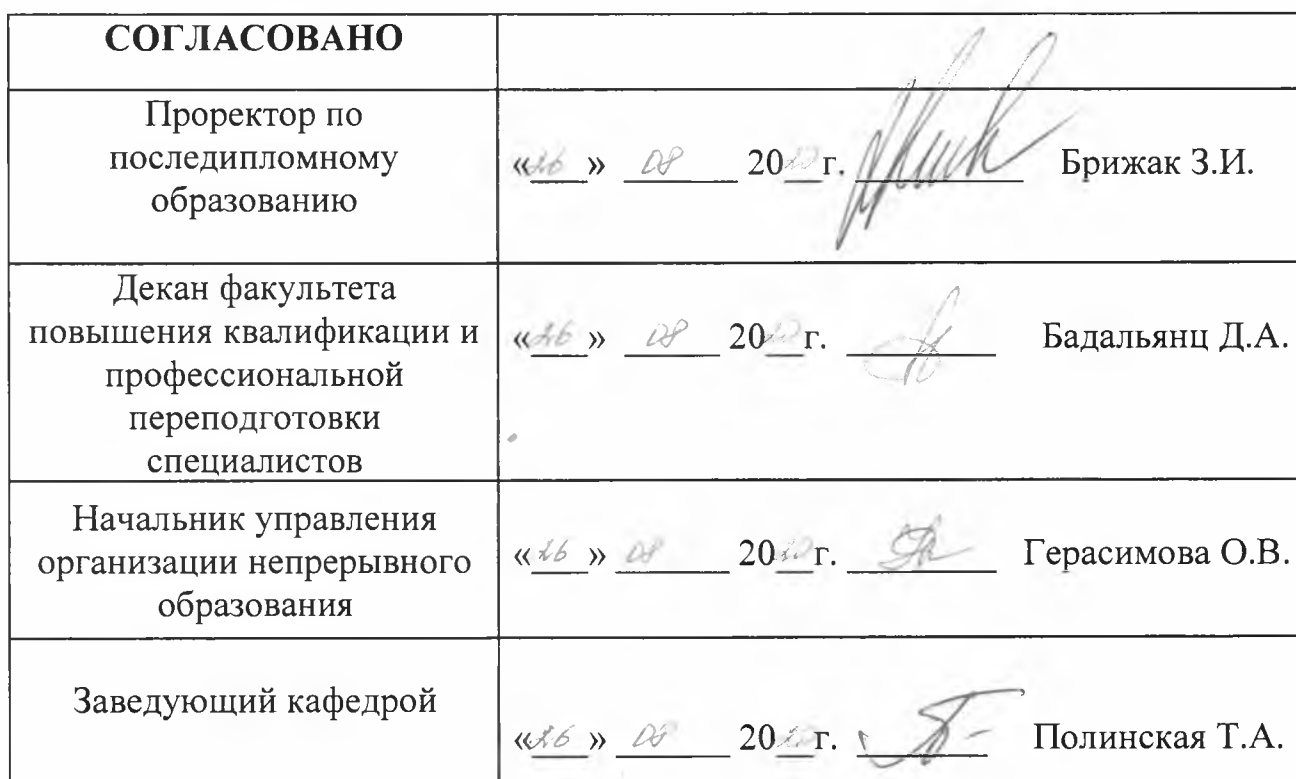 СОГЛАСОВАНО
Проректор по
последипломному
образованию
«26» 08 2020г. Брижак З.И.
Декан факультета
повышения квалификации и
профессиональной
переподготовки
специалистов
«26» 08 2020г. Бадальянц Д.А.
Начальник управления
организации непрерывного
образования
«26» 08 2020г. Герасимова О.В.
Заведующий кафедрой
«26» 08 2020г. Полинская Т.А.